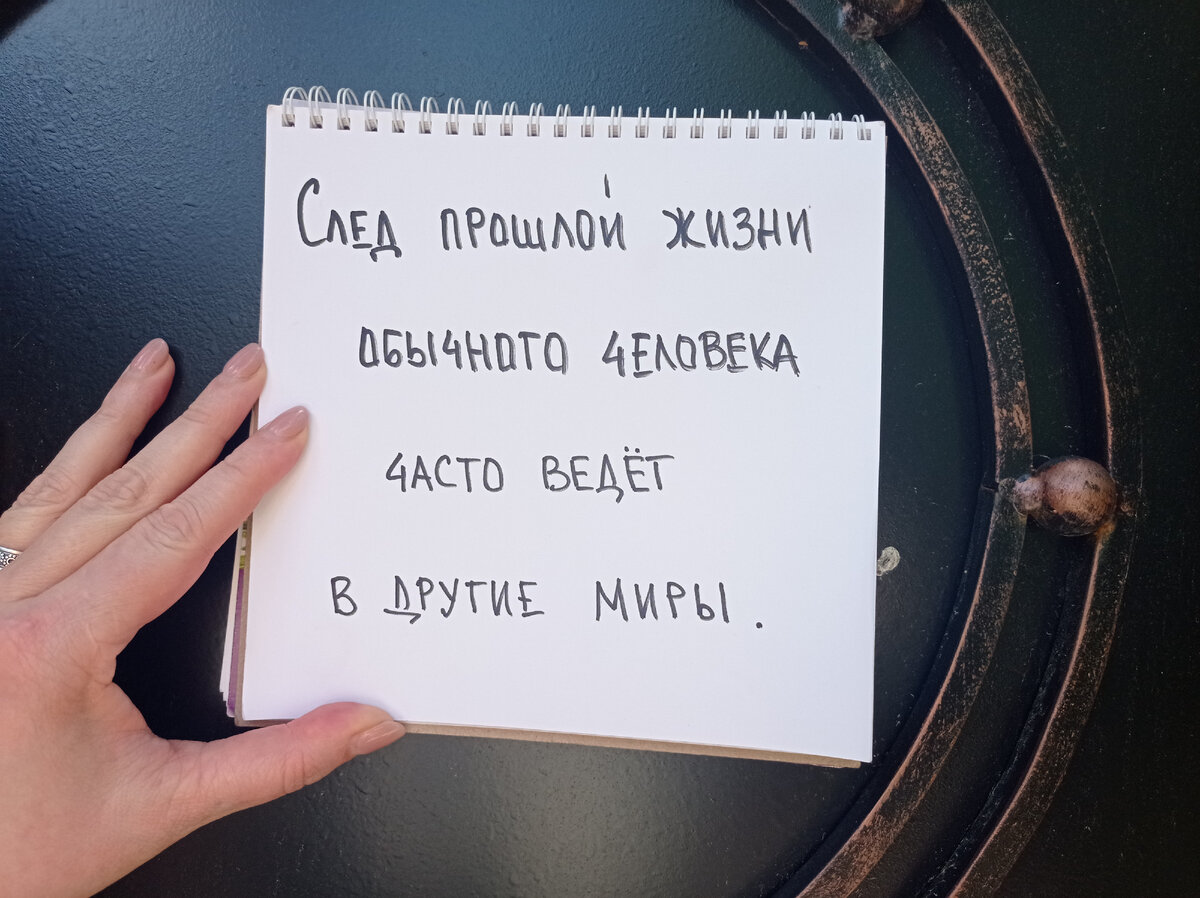 След прошлой жизни
обычного человека
часто ведёт
в другие миры.